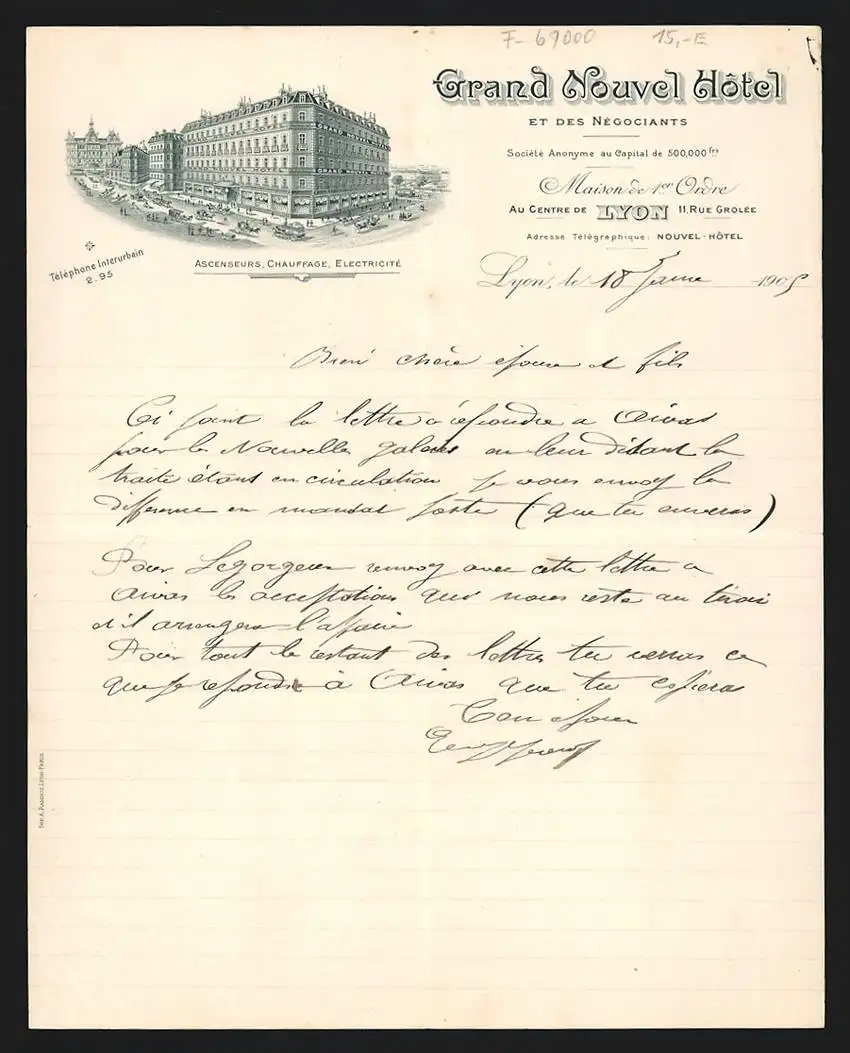 F- 69000 15,-E
Grand Nouvel Hôtel
ET DES NÉGOCIANTS
Société Anonyme au Capital de 500,000 frs
Maison de 1er Ordre
AU CENTRE DE LYON 11, RUE GROLÉE
Adresse Télégraphique: NOUVEL-HÔTEL
GRAND NOUVEL HOTEL
Téléphone Interurbain
2.95
ASCENSEURS, CHAUFFAGE, ELECTRICITÉ
Lyon, le 18 1905
Bien chère épouse et fils
Ci joint la lettre a répondre a
pour les Nouvelles galeries en leur disant la
traite étant en circulation je vous envoy la
difference en mandat poste (que tu enveras)
Pour renvoy avec cette lettre a
les acceptations que nous reste au tiroir
et il arrangera l'affaire
Pour tout le restant des lettres tu verras ce
que je reponds à que tu copieras
Ton époux
IMP. A. LYON-PARIS